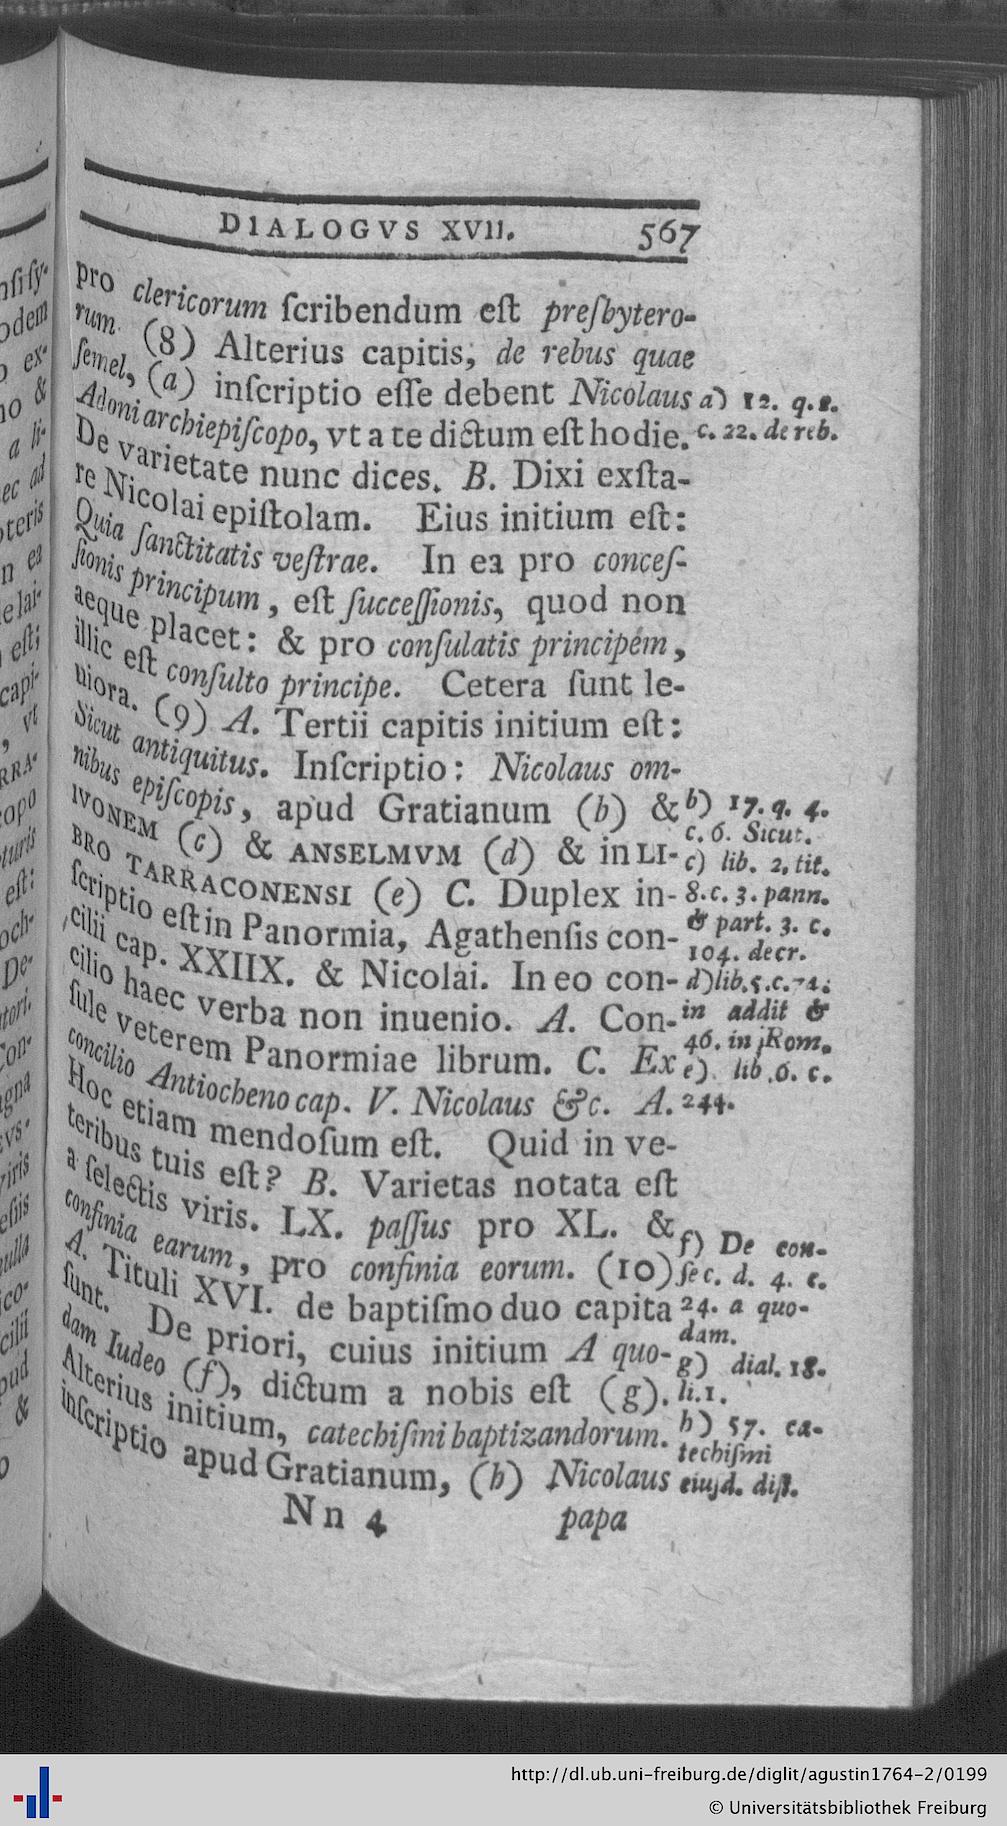 DIALOGVS XVII. 567
pro clericorum ſcribendum eſt preſbytero-
rum. (8) Alterius capitis, de rebus quae
ſemel, (a) inſcriptio eſſe debent Nicolaus
Adoni archiepiſcopo, vt a te dictum eſt hodie.
De varietate nunc dices. B. Dixi exſta-
re Nicolai epiſtolam. Eius initium eſt:
Quia ſanctitatis veſtrae. In ea pro conceſ-
ſionis principum, eſt ſucceſſionis, quod non
aeque placet: & pro conſulatis principem,
illic eſt conſulto principe. Cetera ſunt le-
uiora. (9) A. Tertii capitis initium eſt:
Sicut antiquitus. Inſcriptio: Nicolaus om-
nibus epiſcopis, apud Gratianum (b) &
IVONEM (c) & ANSELMVM (d) & in LI-
BRO TARRACONENSI (e) C. Duplex in-
ſcriptio eſt in Panormia, Agathenſis con-
cilii cap. XXIIX. & Nicolai. In eo con-
cilio haec verba non inuenio. A. Con-
ſule veterem Panormiae librum. C. Ex
concilio Antiocheno cap. V. Nicolaus &c. A.
Hoc etiam mendoſum eſt. Quid in ve-
teribus tuis eſt? B. Varietas notata eſt
a ſelectis viris. LX. paſſus pro XL. &
confinia earum, pro confinia eorum. (10)
A. Tituli XVI. de baptiſmo duo capita
ſunt. De priori, cuius initium A quo-
dam Iudeo (f), dictum a nobis eſt (g).
Alterius initium, catechiſmi baptizandorum.
inſcriptio apud Gratianum, (h) Nicolaus
Nn 4 papa
a) 12. q. 2.
c. 22. de reb.
b) 17. q. 4.
c. 6. Sicut.
c) lib. 2. tit.
8. c. 3. pann.
& part. 3. c.
104. decr.
d) lib. 5. c. 74.
in addit &
46. in Rom.
e) lib. 6. c.
244.
f) De con-
ſec. d. 4. c.
24. a quo-
dam.
g) dial. 18.
li. 1.
h) 57. ca-
techiſmi
eiuſd. diſt.
http://dl.ub.uni-freiburg.de/diglit/agustin1764-2/0199
© Universitätsbibliothek Freiburg